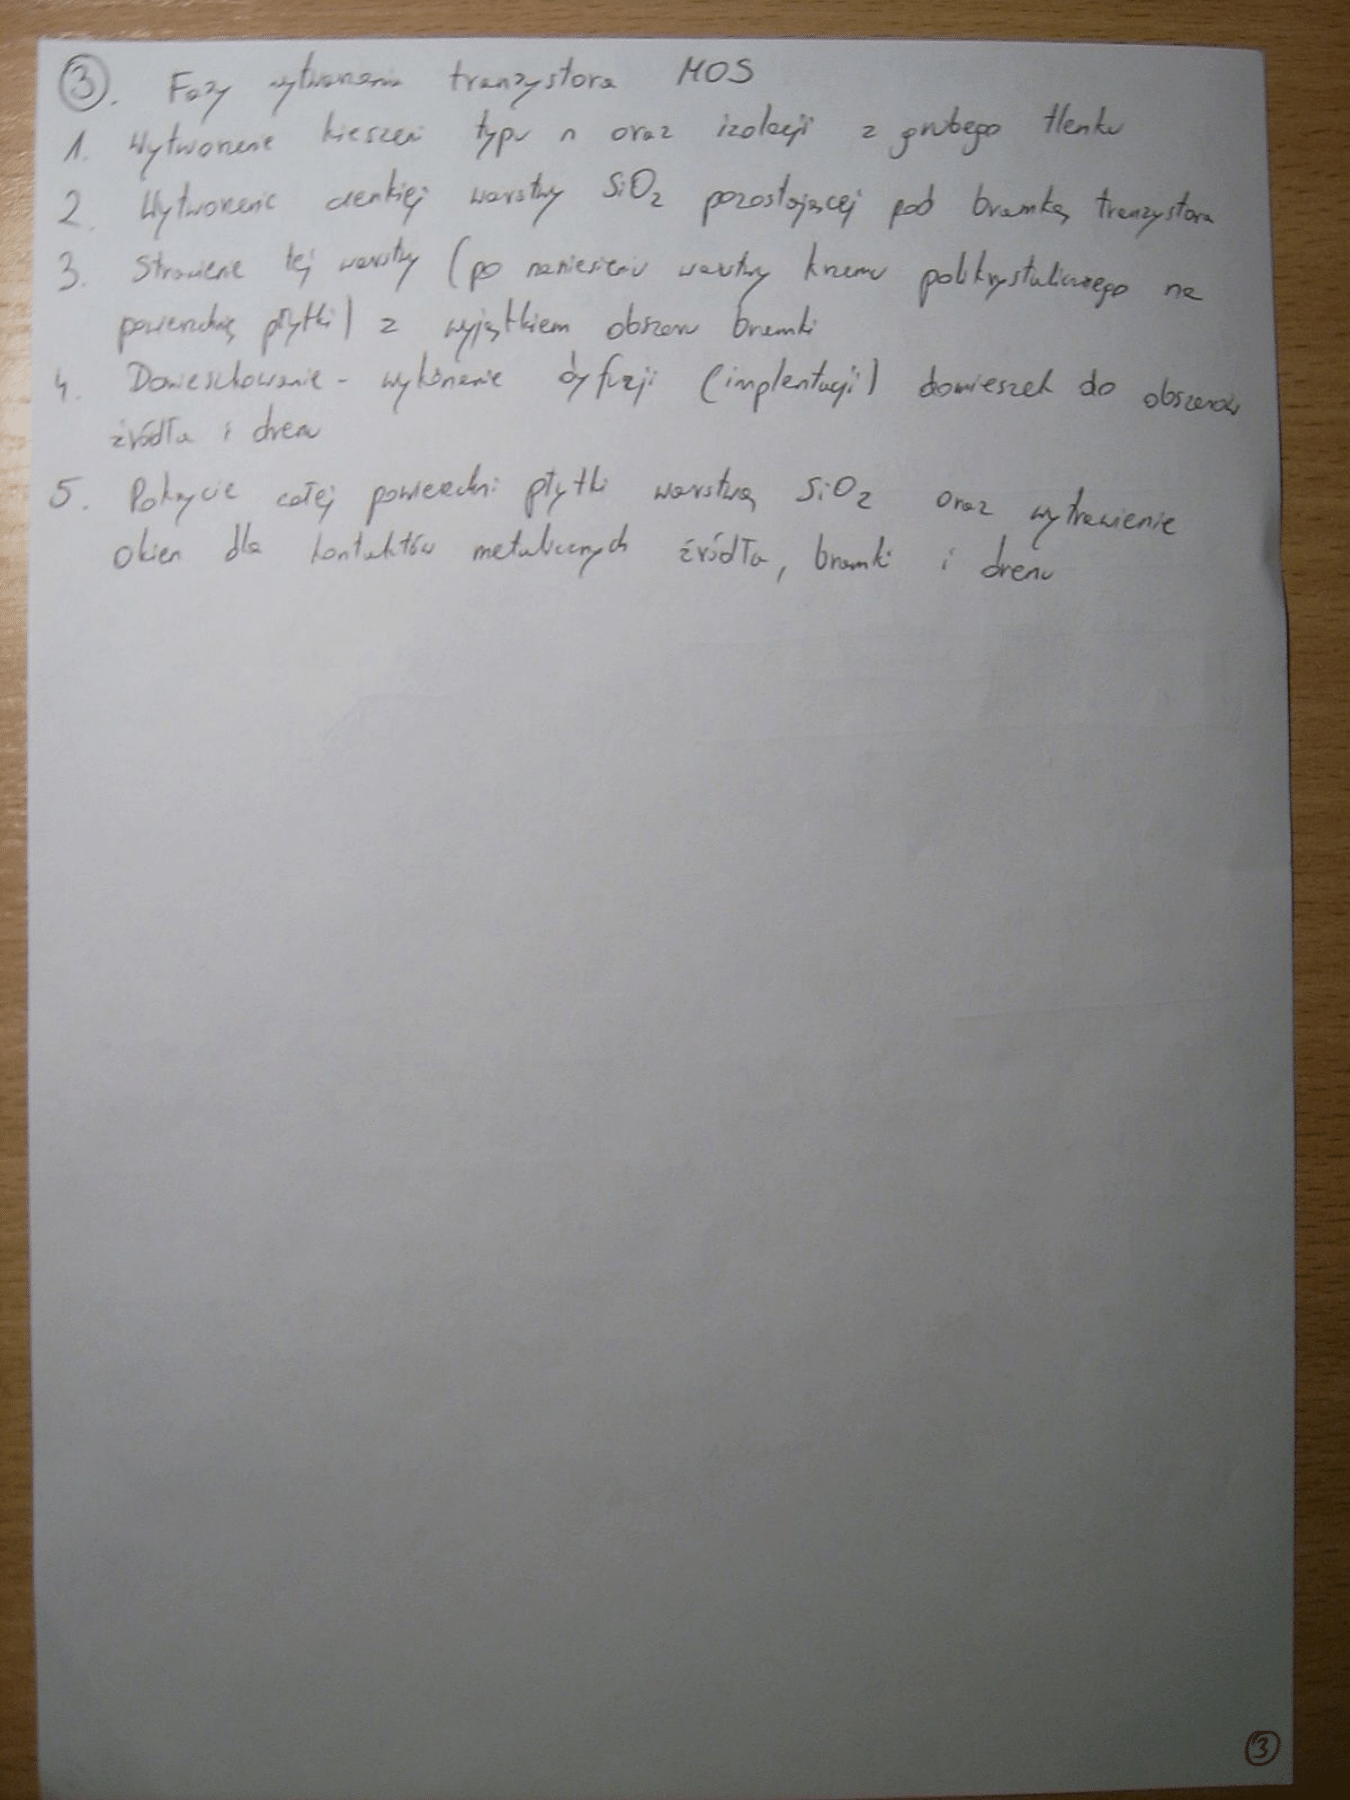 3. Fazy wytwarzania tranzystora MOS
1. Wytworzenie kieszeni typu n oraz izolacji z grubego tlenku
2. Wytworzenie cienkiej warstwy SiO2 pozostającej pod bramką tranzystora
3. Strawienie tej warstwy (po naniesieniu warstwy krzemu polikrystalicznego na
powierzchnię płytki) z wyjątkiem obszaru bramki
4. Domieszkowanie - wykonanie dyfuzji (implantacji) domieszek do obszarów
źródła i drenu
5. Pokrycie całej powierzchni płytki warstwą SiO2 oraz wytrawienie
okien dla kontaktów metalicznych źródła, bramki i drenu
3